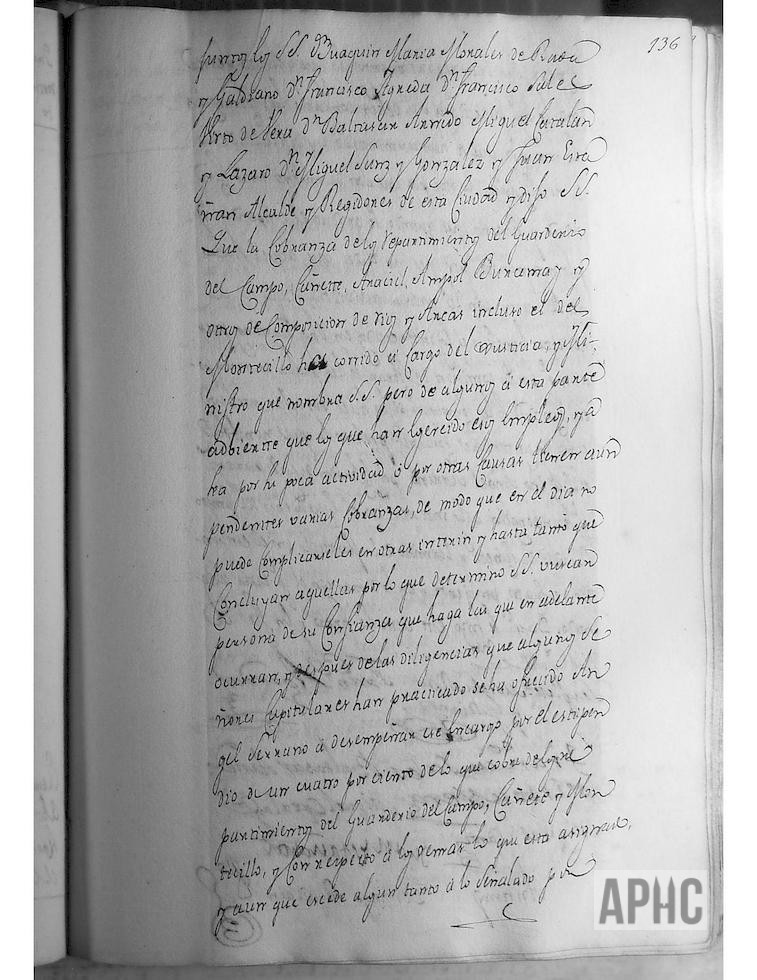 136
juntos los SS. Dn Juaquin Maria Morales de Rada
y Galdeano Dn Francisco Ligueda Dn Francisco Sales
Virto de Vera Dn Baltasar Arnedo Miguel Catalan
y Lazaro Dn Miguel Sanz y Gonzalez y Juan Esta
ñan Alcalde y Regidores de esta Ciudad y dijo SS.
Que la Cobranza de los repartimientos del Guarderio
del Campo, Cañete, Anaciel, Ampol Bunamay y
otros de Composicion de rios y Ancas incluso el del
Montecillo ha corrido a Cargo del Justicia, y Mi-
nistro que nombra SS. pero de algunos a esta parte
adbierte que los que han egercido esos Empleos, ya
sea por su poca actividad o por otras Causas tienen aun
pendientes varias Cobranzas, de modo que en el dia no
puede Complicarseles en otras interin y hasta tanto que
Concluyan aquellas por lo que determino SS. buscar
persona de su Confianza que haga las que en adelante
ocurran, y despues de las diligencias que algunos Se
ñores Capitulares han practicado se ha ofrecido An
gel Serrano a desempeñar ese Encargo por el estipen
dio de un cuatro por ciento de lo que cobre de los re
partimientos del Guarderio del Campo, Cañete y Mon
tecillo, y Con respecto a los demas lo que esta asignado,
y aun que escede algun tanto a lo señalado por
APHC